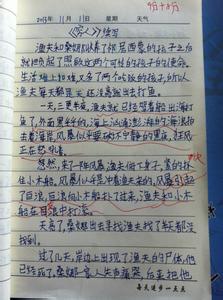 9月+8月
2013年 11月 1日 星期 天气
《穷人》续写
渔夫和桑娜收养了邻居西蒙的孩子之后
就担负起了照顾这两个可怜的孩子的使命。
生活
又多了两个吃饭的孩子,所以
渔夫每天都是
还没亮就出去打鱼。
一天,三更半夜,渔夫就已经驾着船出海打
鱼了。外面黑乎乎的,海上汹涌澎湃的海浪拍
击着海岸,风暴似乎要破坏宁静的黑夜,狂风
正在怒吼着。
忽然,来了一阵风暴,渔夫俯下身子,紧的抓
住小木船,风暴似乎是冲着渔夫来的,风暴引起
了巨浪,巨浪向小木船扑了过来,渔夫和小木
船在
中打滚。
天亮了,桑娜出去寻找渔夫找了好久都没
找到。
过了几天,岸边上出现了渔夫的尸体,他
已经成了
桑娜一家人失声痛哭,后来把他
每天进步一点点